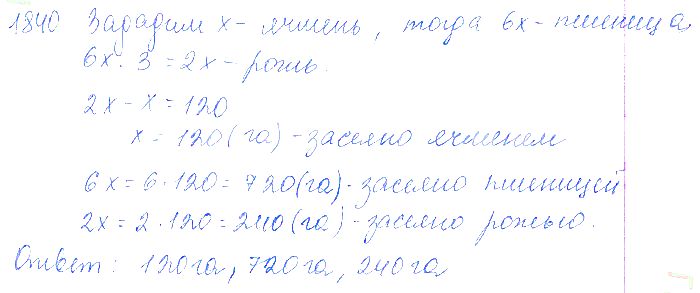 1840 Зададим x - ячмень, тогда 6x - пшеница
6x : 3 = 2x - рожь.
2x - x = 120
x = 120 (га) - засеяно ячменем
6x = 6 · 120 = 720 (га) - засеяно пшеницей
2x = 2 · 120 = 240 (га) - засеяно рожью.
Ответ: 120 га, 720 га, 240 га